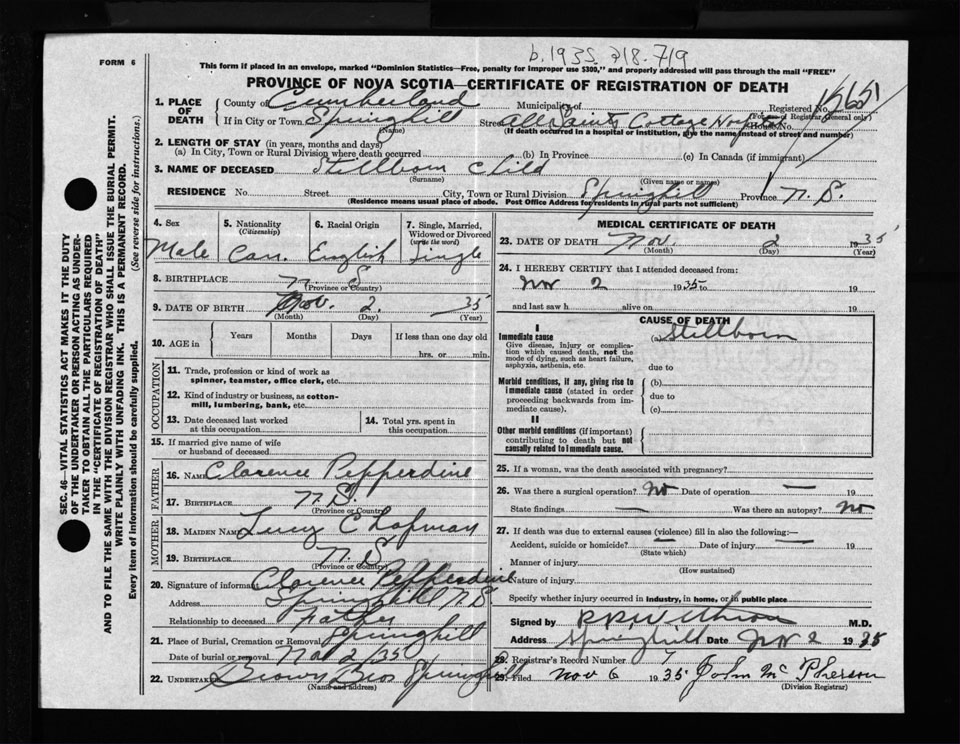 b. 1935 . 218 . 719
FORM 6
This form if placed in an envelope, marked "Dominion Statistics—Free, penalty for improper use $300," and properly addressed will pass through the mail "FREE"
PROVINCE OF NOVA SCOTIA—CERTIFICATE OF REGISTRATION OF DEATH
SEC. 46—VITAL STATISTICS ACT MAKES IT THE DUTY
OF THE UNDERTAKER OR PERSON ACTING AS UNDER-
TAKER TO OBTAIN ALL THE PARTICULARS REQUIRED
IN THE "CERTIFICATE OF REGISTRATION OF DEATH"
AND TO FILE THE SAME WITH THE DIVISION REGISTRAR WHO SHALL ISSUE THE BURIAL PERMIT.
WRITE PLAINLY WITH UNFADING INK. THIS IS A PERMANENT RECORD.
Every item of information should be carefully supplied. (See reverse side for instructions.)
1. PLACE OF DEATH County of Cumberland Municipality of Registered No.
(For use of Registrar General only)
If in City or Town Springhill Street All Saints Cottage Hospital House No.
(Name) (If death occurred in a hospital or institution, give the name instead of street and number)
2. LENGTH OF STAY (in years, months and days)
(a) In City, Town or Rural Division where death occurred (b) In Province (c) In Canada (if immigrant)
3. NAME OF DECEASED Stillborn Child
(Surname) (Given name or names)
RESIDENCE No. Street City, Town or Rural Division Springhill Province N. S.
(Residence means usual place of abode. Post Office Address for residents in rural parts not sufficient)
4. Sex 5. Nationality (Citizenship) 6. Racial Origin 7. Single, Married, Widowed or Divorced (write the word)
Male Can. English Single
8. BIRTHPLACE N. S
(Province or Country)
9. DATE OF BIRTH Nov. 2. 35
(Month) (Day) (Year)
10. AGE in Years Months Days If less than one day old
hrs. or min.
OCCUPATION
11. Trade, profession or kind of work as
spinner, teamster, office clerk, etc.
12. Kind of industry or business, as cotton-
mill, lumbering, bank, etc.
13. Date deceased last worked
at this occupation
14. Total yrs. spent in
this occupation
15. If married give name of wife
or husband of deceased
FATHER
16. NAME Clarence Pepperdine
17. BIRTHPLACE N. S.
(Province or Country)
MOTHER
18. MAIDEN NAME Lucy Chapman
19. BIRTHPLACE N. S
(Province or Country)
20. Signature of informant Clarence Pepperdine
Address Springhill N S
Relationship to deceased Father
21. Place of Burial, Cremation or Removal Springhill
Date of burial or removal Nov 2/35
22. UNDERTAKER Brown Bros Springhill
(Name and address)
MEDICAL CERTIFICATE OF DEATH
23. DATE OF DEATH Nov. 2 1935
(Month) (Day) (Year)
24. I HEREBY CERTIFY that I attended deceased from:
Nov 2 1935 to 19
and last saw h alive on 19
CAUSE OF DEATH
I
Immediate cause (a) Stillborn
Give disease, injury or complica-
tion which caused death, not the
mode of dying, such as heart failure,
asphyxia, asthenia, etc.
due to
Morbid conditions, if any, giving rise to
immediate cause (stated in order
proceeding backwards from im-
mediate cause).
(b)
due to
(c)
II
Other morbid conditions (if important)
contributing to death but not
causally related to immediate cause.
25. If a woman, was the death associated with pregnancy?
26. Was there a surgical operation? No Date of operation — 19
State findings — Was there an autopsy? No
27. If death was due to external causes (violence) fill in also the following:—
Accident, suicide or homicide? — Date of injury — 19
(State which)
Manner of injury
(How sustained)
Nature of injury
Specify whether injury occurred in industry, in home, or in public place
Signed by M.D.
Address Springhill Date Nov 2 1935
28. Registrar's Record Number 7
29. Filed Nov 6 1935 John McPherson
(Division Registrar)